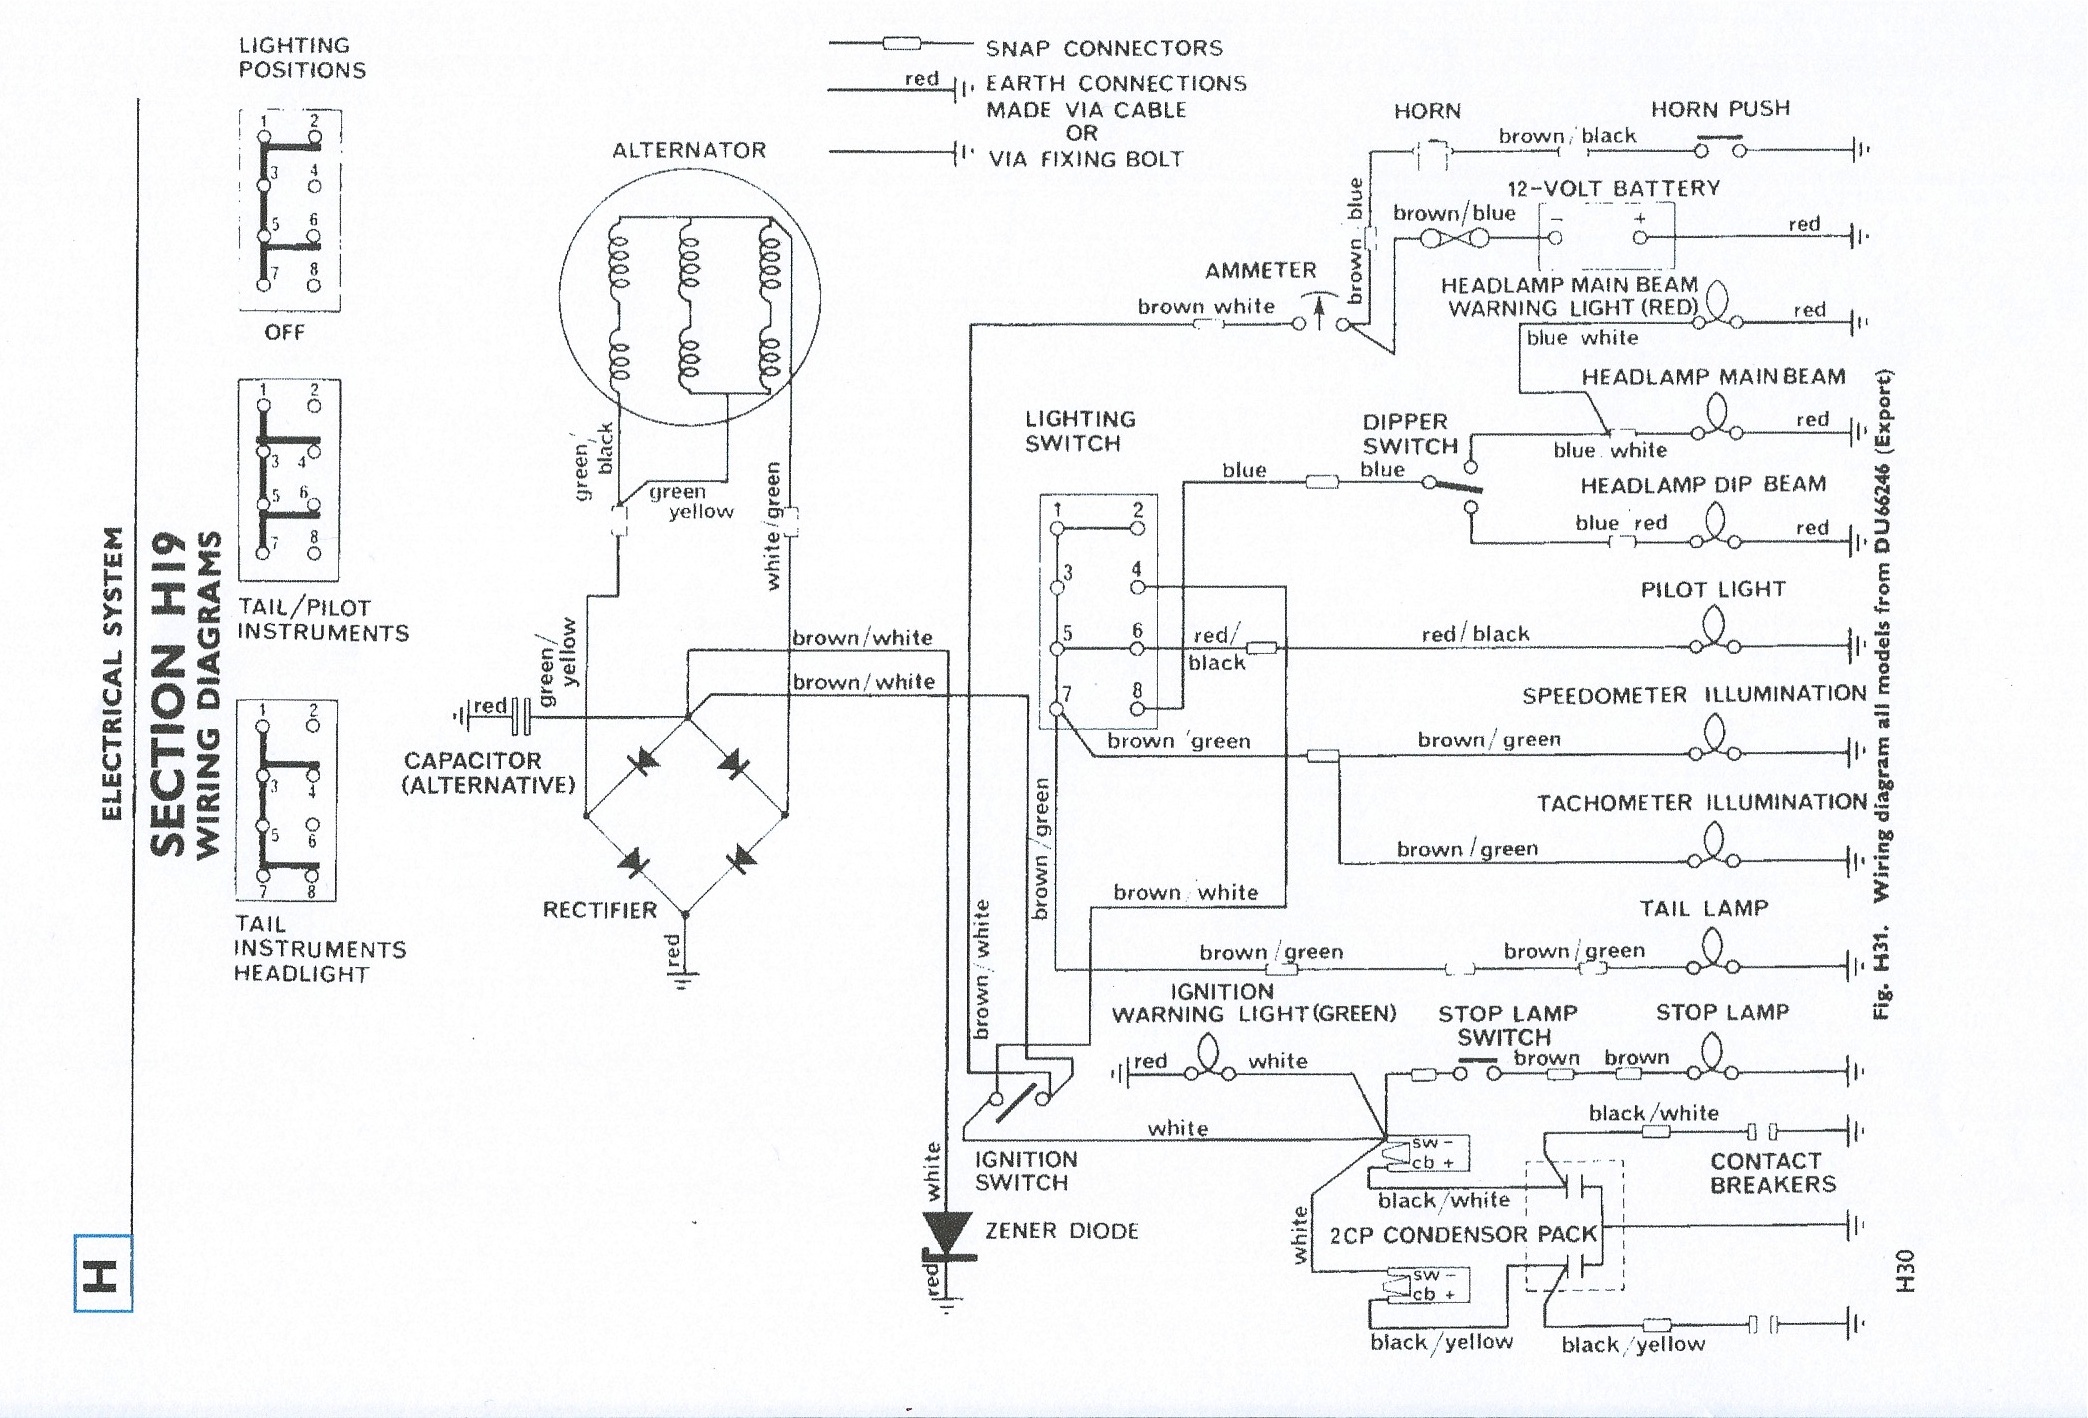 ELECTRICAL SYSTEM
SECTION H19
WIRING DIAGRAMS
H
LIGHTING
POSITIONS
1 2
3 4
5 6
7 8
OFF
1 2
3 4
5 6
7 8
TAIL/PILOT
INSTRUMENTS
1 2
3 4
5 6
7 8
TAIL
INSTRUMENTS
HEADLIGHT
SNAP CONNECTORS
red
EARTH CONNECTIONS
MADE VIA CABLE
OR
VIA FIXING BOLT
ALTERNATOR
green/
black
green
yellow
white/green
green/
yellow
red
CAPACITOR
(ALTERNATIVE)
brown/white
brown/white
RECTIFIER
red
HORN
brown/black
HORN PUSH
brown blue
12-VOLT BATTERY
brown/blue
- +
red
AMMETER
brown white
HEADLAMP MAIN BEAM
WARNING LIGHT (RED)
red
blue white
HEADLAMP MAIN BEAM
red
blue white
LIGHTING
SWITCH
DIPPER
SWITCH
blue
blue
HEADLAMP DIP BEAM
blue red
red
1 2
3 4
5 6
7 8
PILOT LIGHT
red/
black
red/black
SPEEDOMETER ILLUMINATION
brown/green
brown/green
TACHOMETER ILLUMINATION
brown/green
brown/green
brown/white
brown/white
TAIL LAMP
brown/green
brown/green
IGNITION
WARNING LIGHT (GREEN)
red
white
STOP LAMP
SWITCH
STOP LAMP
brown
brown
white
IGNITION
SWITCH
white
ZENER DIODE
red
sw -
cb +
black/white
black/white
CONTACT
BREAKERS
white
2CP CONDENSOR PACK
sw -
cb +
black/yellow
black/yellow
Fig. H31. Wiring diagram all models from DU66246 (Export)
H30